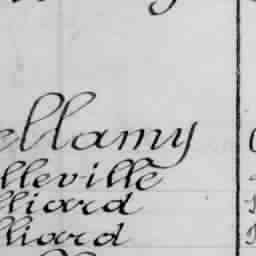 ellamy
lleville
lliard
lliard